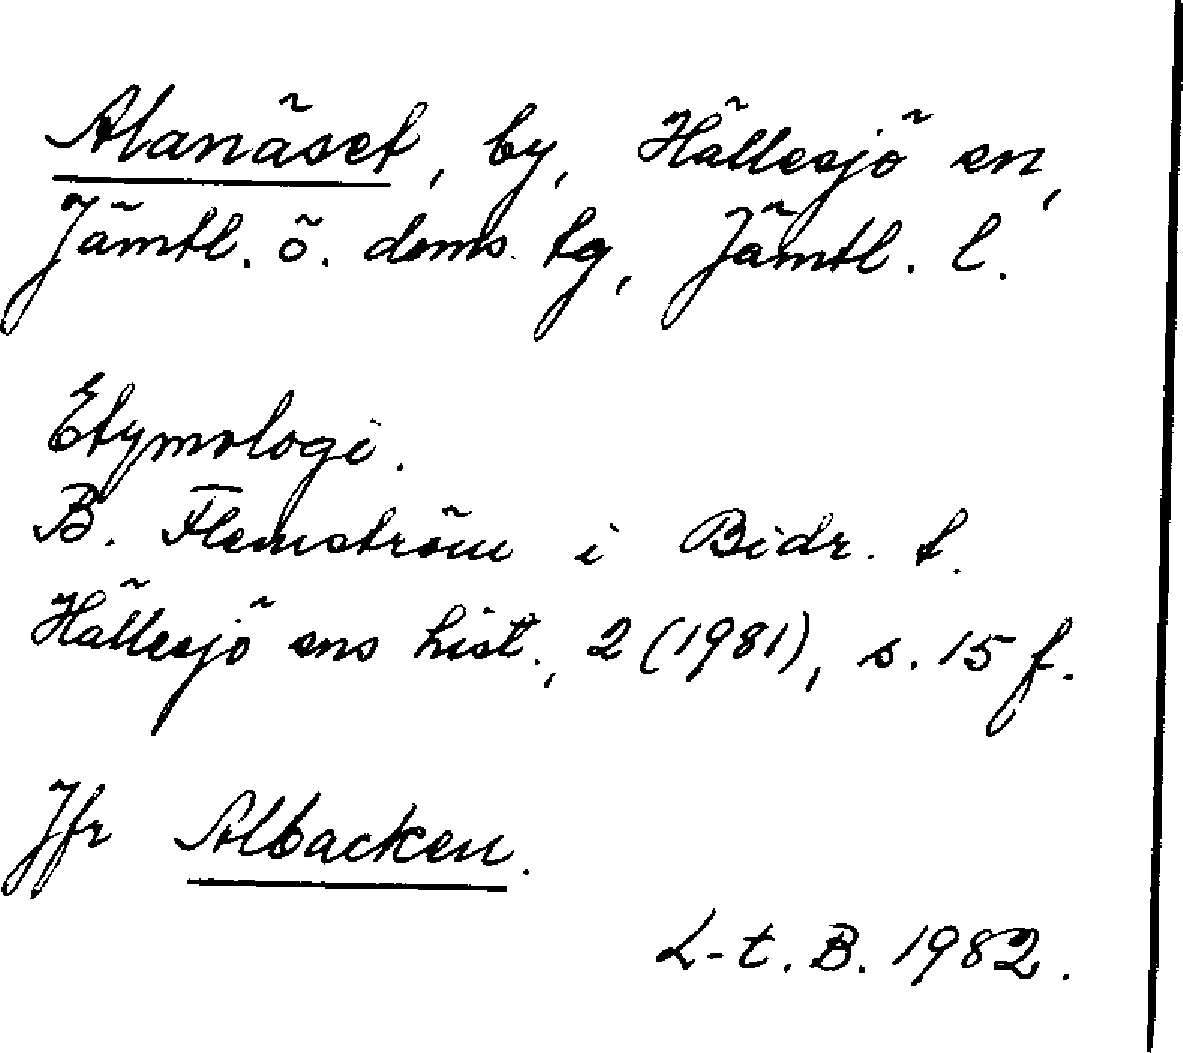 Alanäset, by, Hällesjö sn,
Jämtl. ö. doms. tg, Jämtl. l.
Etymologi.
B. Flemström i Bidr. t.
Hällesjö sns hist., 2 (1981), s. 15 f.
Jfr Albacken.
L-t. B. 1982.